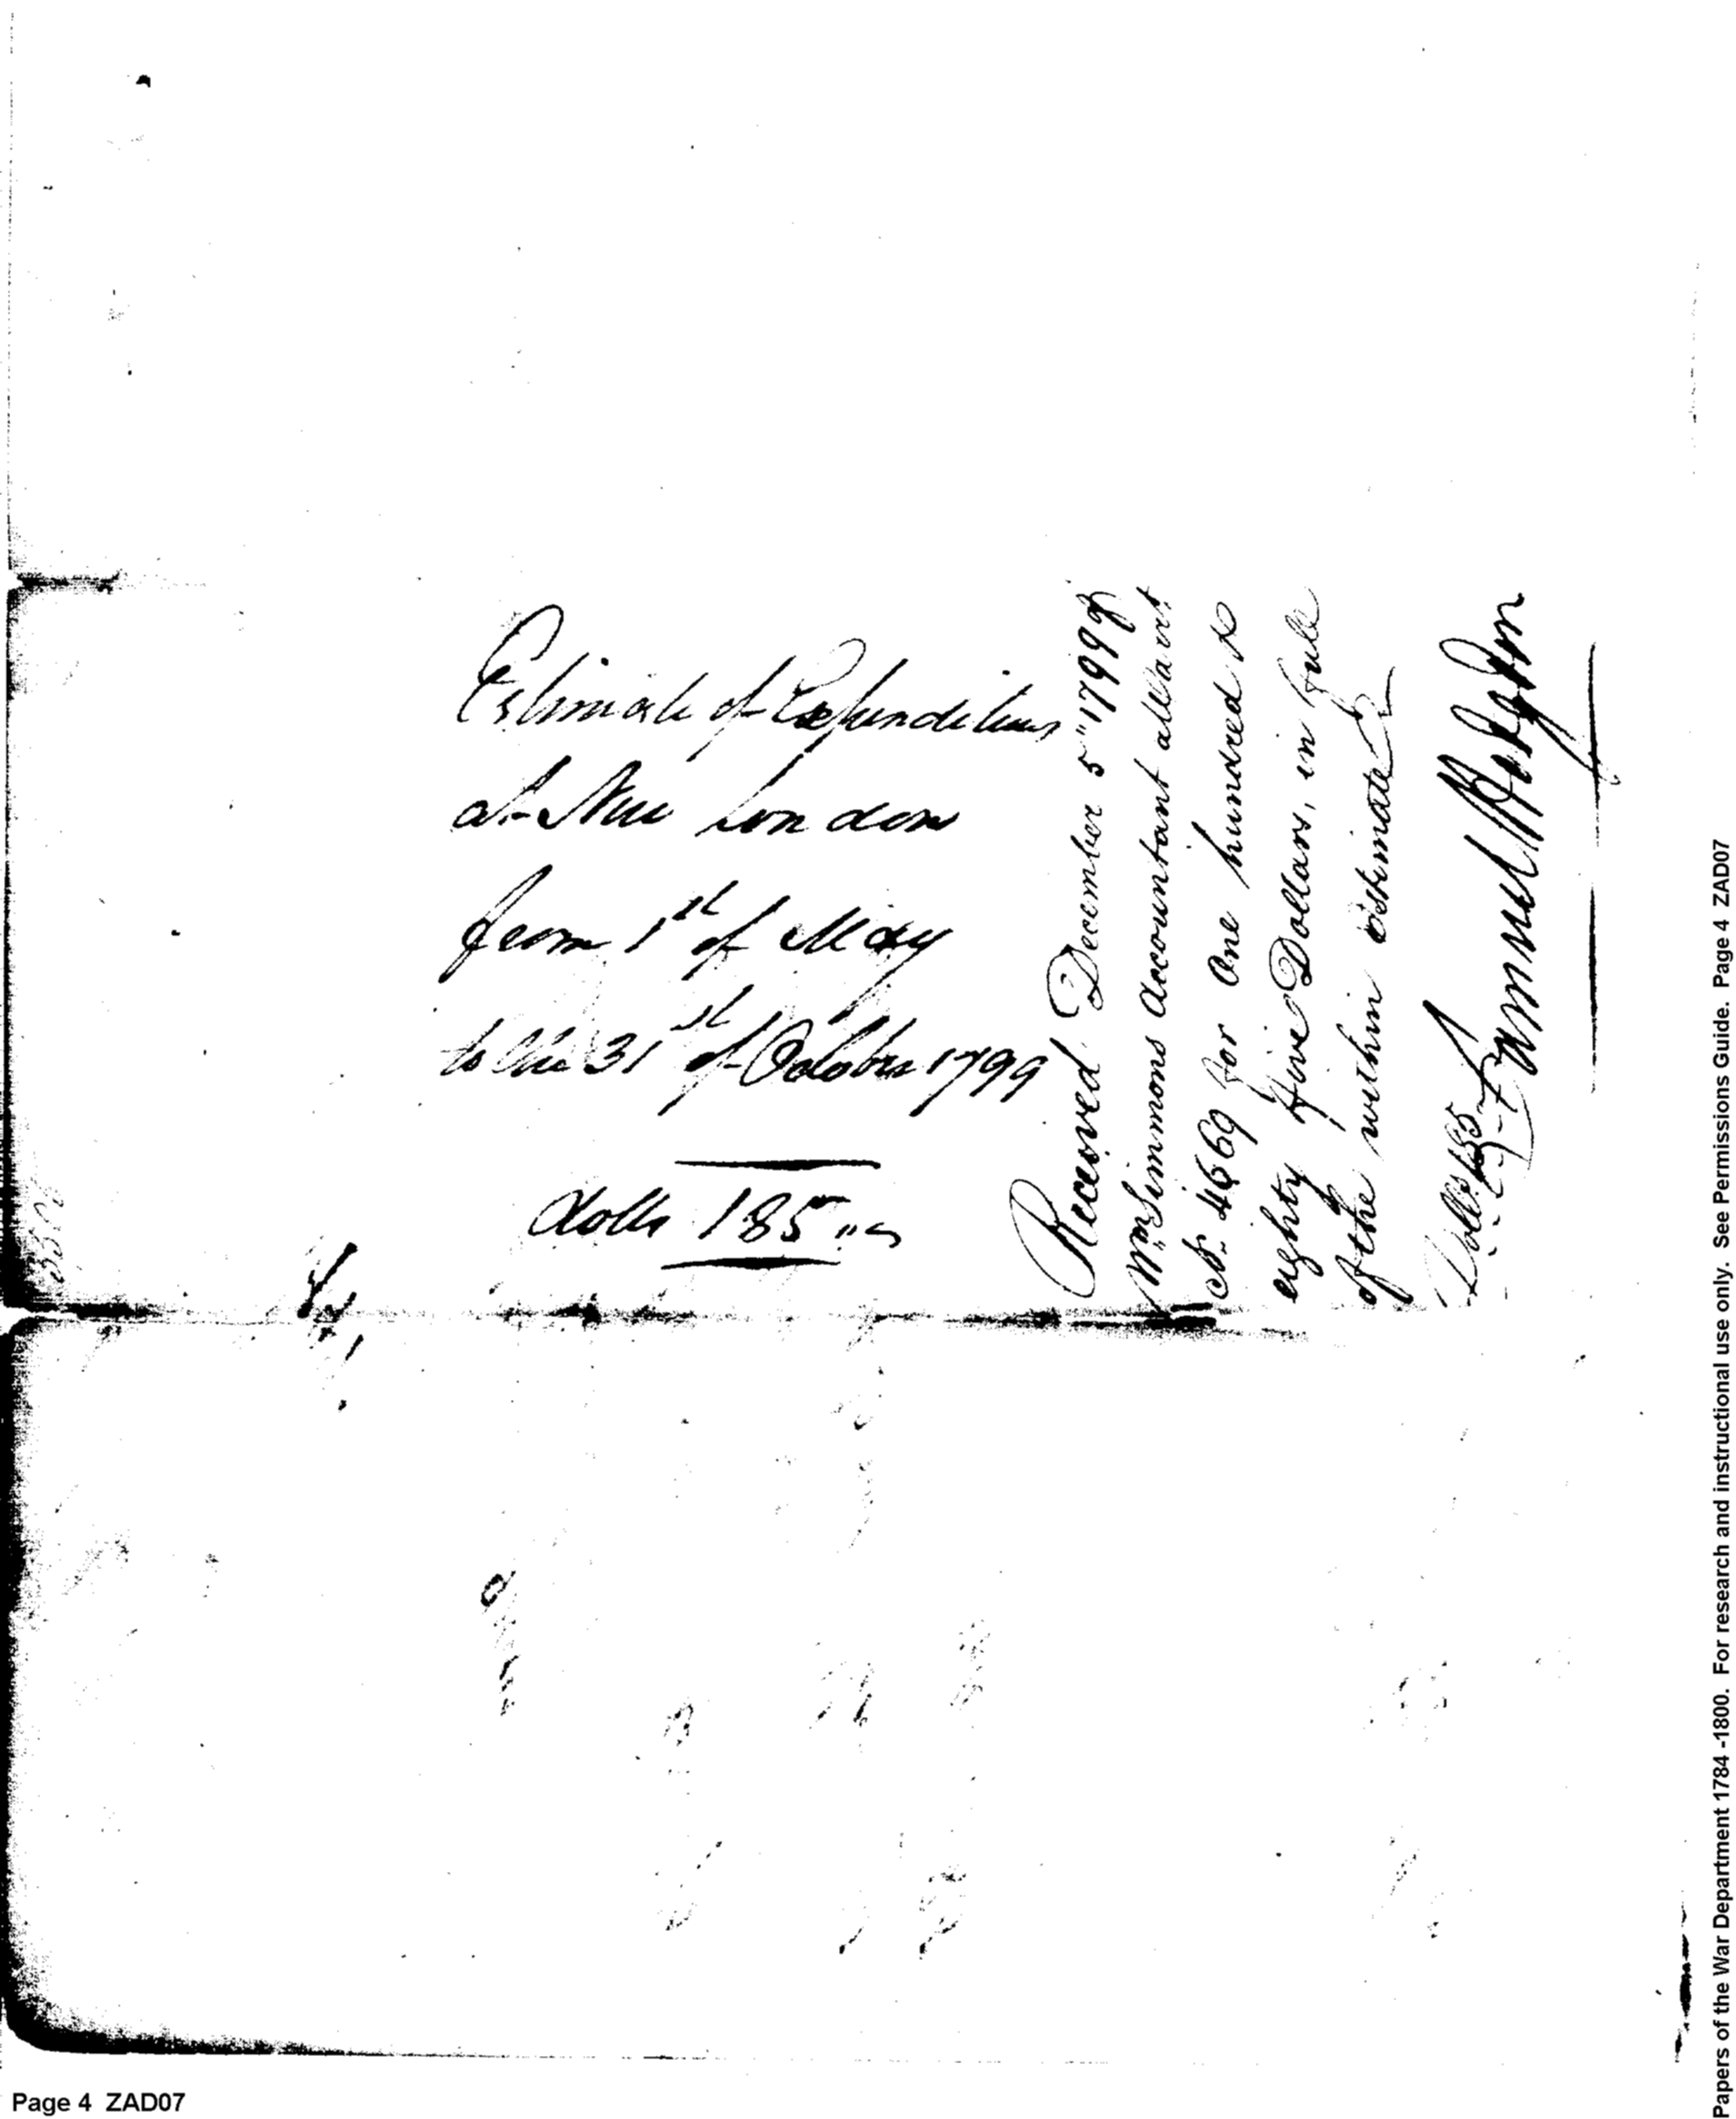 Estimate of Expenditures
at New London
from 1st of May
to the 31st of October 1799
dolls 185
Received December 5" 1799 of
Wm Simmons Accountant a Warrt
No. 4669 for One hundred &
eighty five Dollars, in full
of the within estimate
Dolls 185
Samuel Hodgdon
Page 4 ZAD07
Papers of the War Department 1784 -1800. For research and instructional use only. See Permissions Guide. Page 4 ZAD07